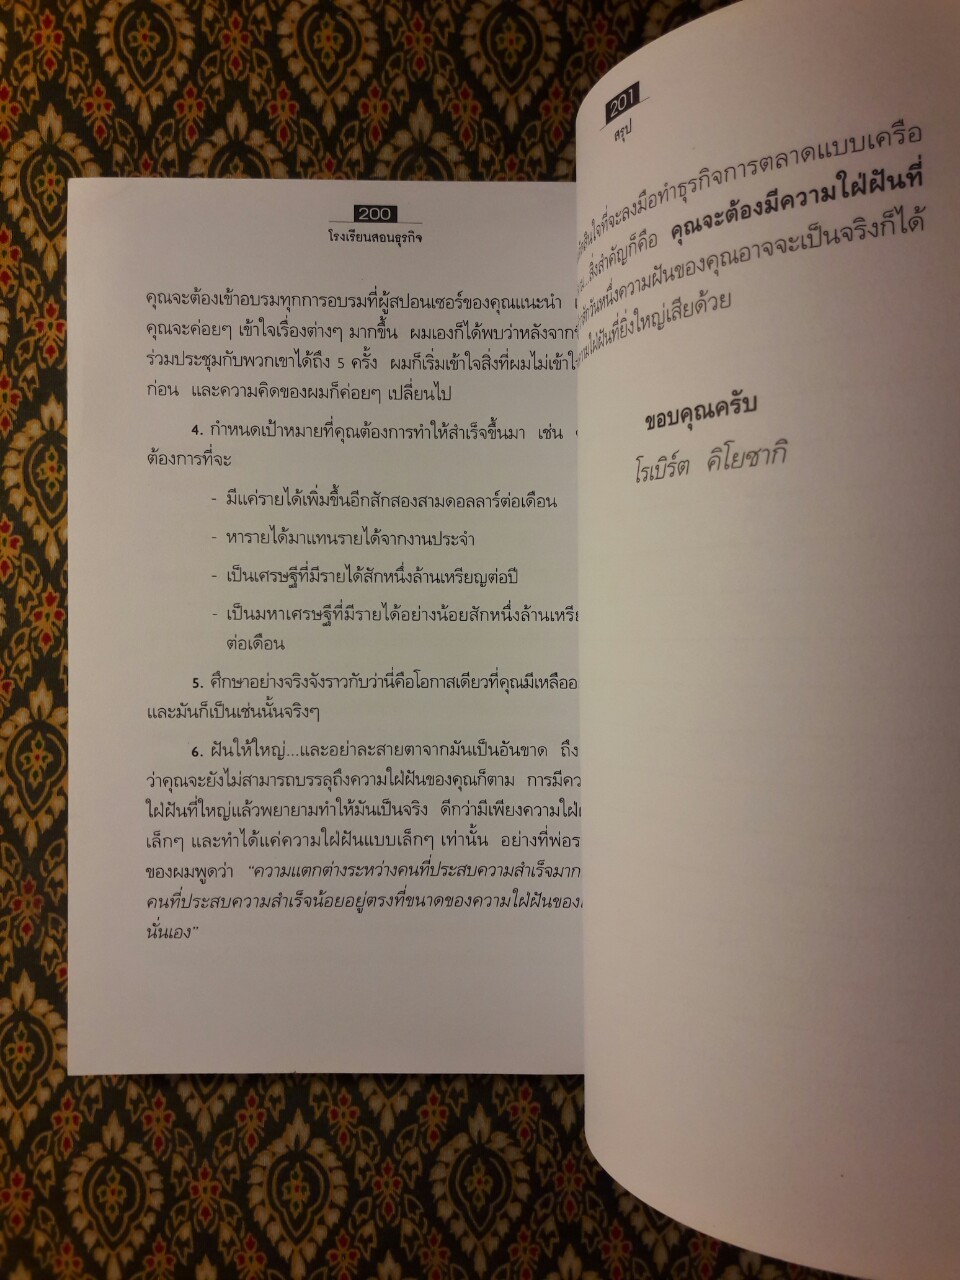 200
โรงเรียนสอนธุรกิจ
คุณจะต้องเข้าอบรมทุกการอบรมที่ผู้สปอนเซอร์ของคุณแนะนำ
คุณจะค่อยๆ เข้าใจเรื่องต่างๆ มากขึ้น ผมเองก็ได้พบว่าหลังจาก
ร่วมประชุมกับพวกเขาได้ถึง 5 ครั้ง ผมก็เริ่มเข้าใจสิ่งที่ผมไม่เข้าใจ
ก่อน และความคิดของผมก็ค่อยๆ เปลี่ยนไป
4. กำหนดเป้าหมายที่คุณต้องการทำให้สำเร็จขึ้นมา เช่น
ต้องการที่จะ
- มีแค่รายได้เพิ่มขึ้นอีกสักสองสามดอลลาร์ต่อเดือน
- หารายได้มาแทนรายได้จากงานประจำ
- เป็นเศรษฐีที่มีรายได้สักหนึ่งล้านเหรียญต่อปี
- เป็นมหาเศรษฐีที่มีรายได้อย่างน้อยสักหนึ่งล้าน
ต่อเดือน
5. ศึกษาอย่างจริงจังราวกับว่านี่คือโอกาสเดียวที่คุณมีเหลือ
และมันก็เป็นเช่นนั้นจริงๆ
6. ฝันให้ใหญ่...และอย่าละสายตาจากมันเป็นอันขาด ถึง
ว่าคุณจะยังไม่สามารถบรรลุถึงความใฝ่ฝันของคุณก็ตาม การมี
ใฝ่ฝันที่ใหญ่แล้วพยายามทำให้มันเป็นจริง ดีกว่ามีเพียงความ
เล็กๆ และทำได้แค่ความใฝ่ฝันแบบเล็กๆ เท่านั้น อย่างที่พ่อ
ของผมพูดว่า "ความแตกต่างระหว่างคนที่ประสบความสำเร็จมาก
คนที่ประสบความสำเร็จน้อยอยู่ตรงที่ขนาดของความใฝ่ฝันของ
นั่นเอง"
201
สรุป
ที่จะลงมือทำธุรกิจการตลาดแบบเครือ
สิ่งสำคัญก็คือ คุณจะต้องมีความใฝ่ฝันที่
วันหนึ่งความฝันของคุณอาจจะเป็นจริงก็ได้
ใฝ่ฝันที่ยิ่งใหญ่เสียด้วย
ขอบคุณครับ
โรเบิร์ต คิโยซากิ